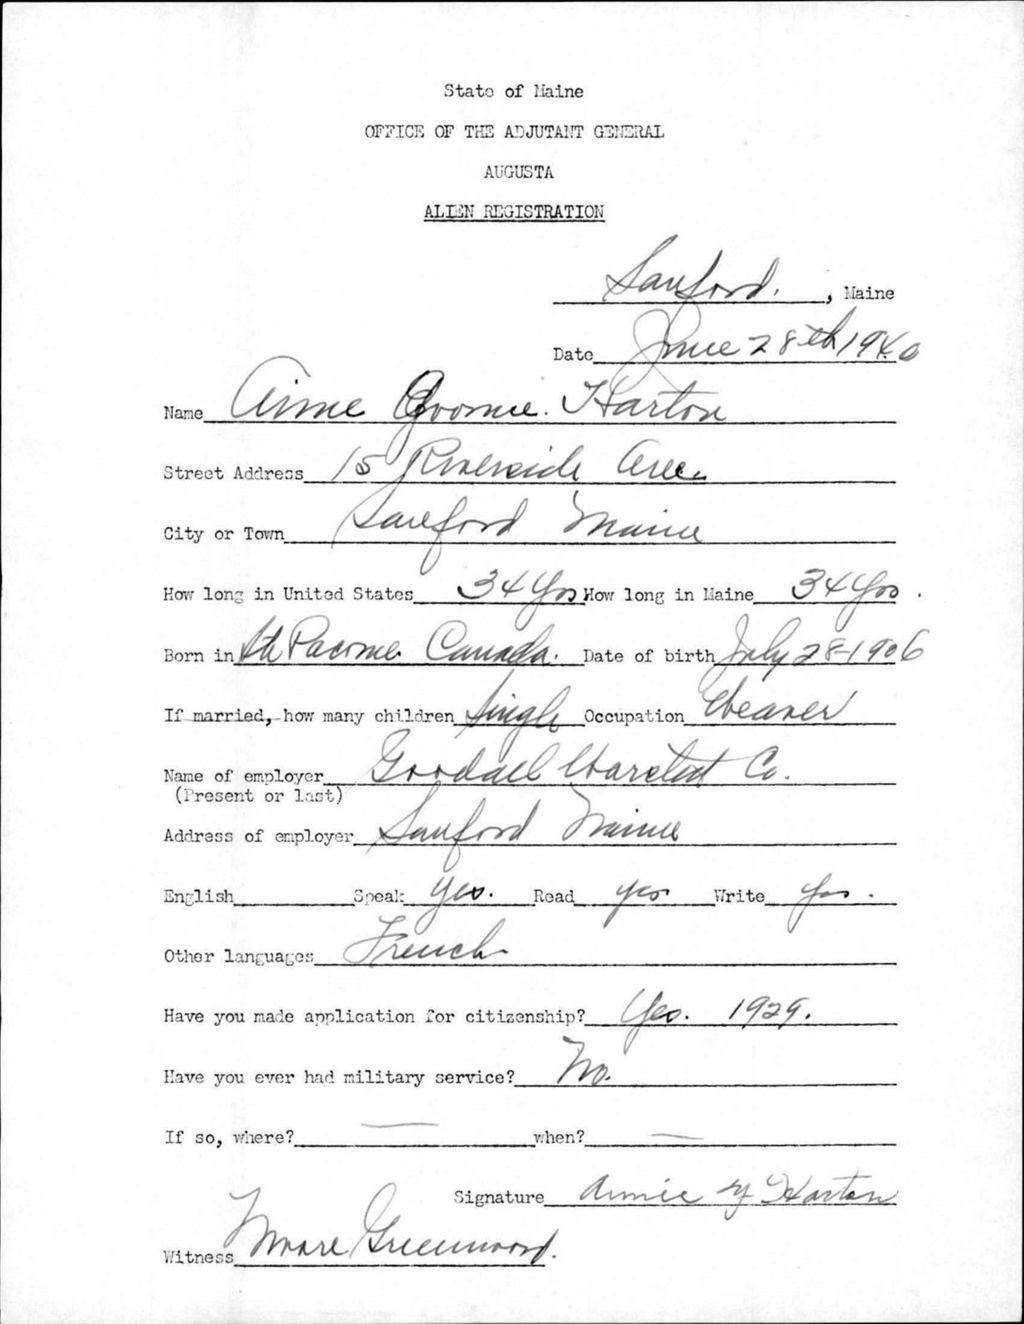 State of Maine
OFFICE OF THE ADJUTANT GENERAL
AUGUSTA
ALIEN REGISTRATION
Sanford. , Maine
Date June 28th 1940
Name Harton
Street Address 15 Riverside Ave.
City or Town Sanford Maine
How long in United States 34 Yrs How long in Maine 34 Yrs .
Born in St Pacome. Canada. Date of birth July 28-1906
If married, how many children Single Occupation Weaver
Name of employer Goodall Worsted Co.
(Present or last)
Address of employer Sanford Maine
English Speak Yes. Read yes Write Yes .
Other languages French
Have you made application for citizenship? Yes. 1929.
Have you ever had military service? No.
If so, where? — when? —
Signature Annie Y Harton
Witness Greenwood.